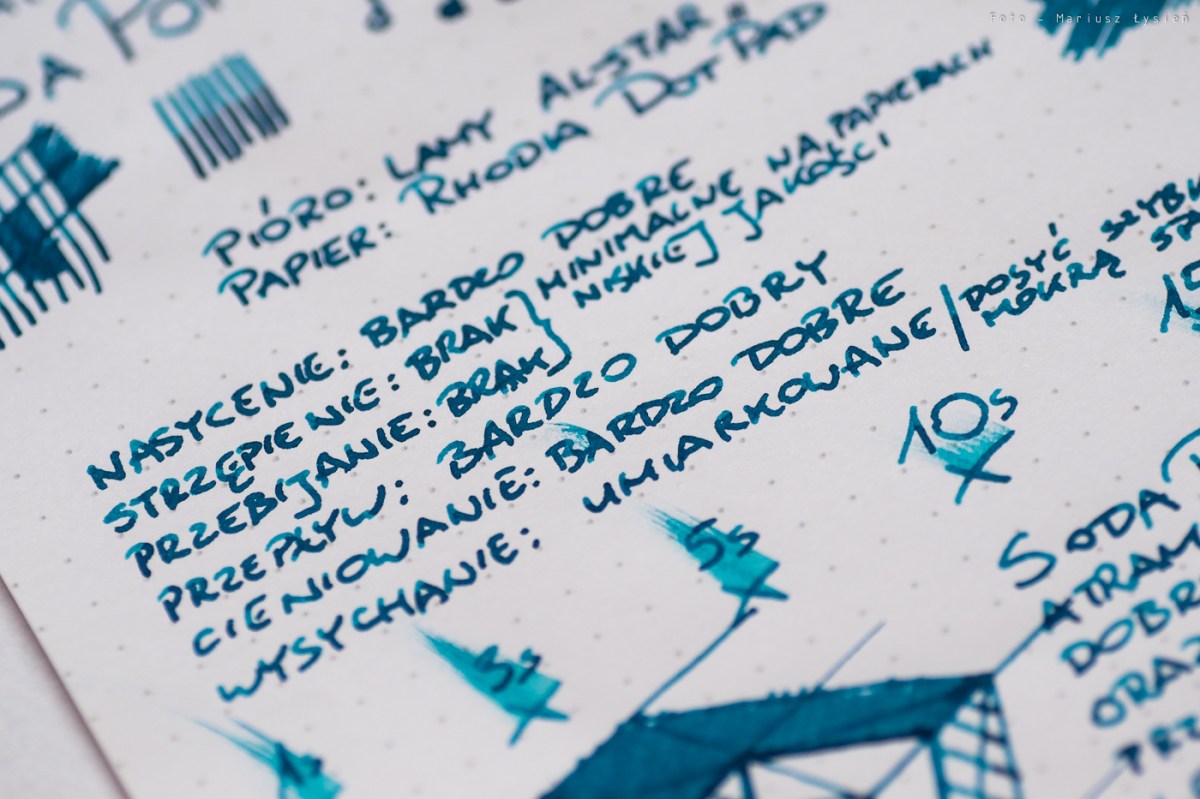 Foto - Mariusz Łysień
PIÓRO: LAMY AL-STAR
PAPIER: RHODIA DOT PAD
NASYCENIE: BARDZO DOBRE
STRZĘPIENIE: BRAK } MINIMALNE NA PAPIERACH
PRZEBIJANIE: BRAK } NISKIEJ JAKOŚCI
PRZEPŁYW: BARDZO DOBRY
CIENIOWANIE: BARDZO DOBRE
WYSYCHANIE: UMIARKOWANE / DOSYĆ
MOKRĄ
10s
5s
3s
SODA
DOBR
ORAZ